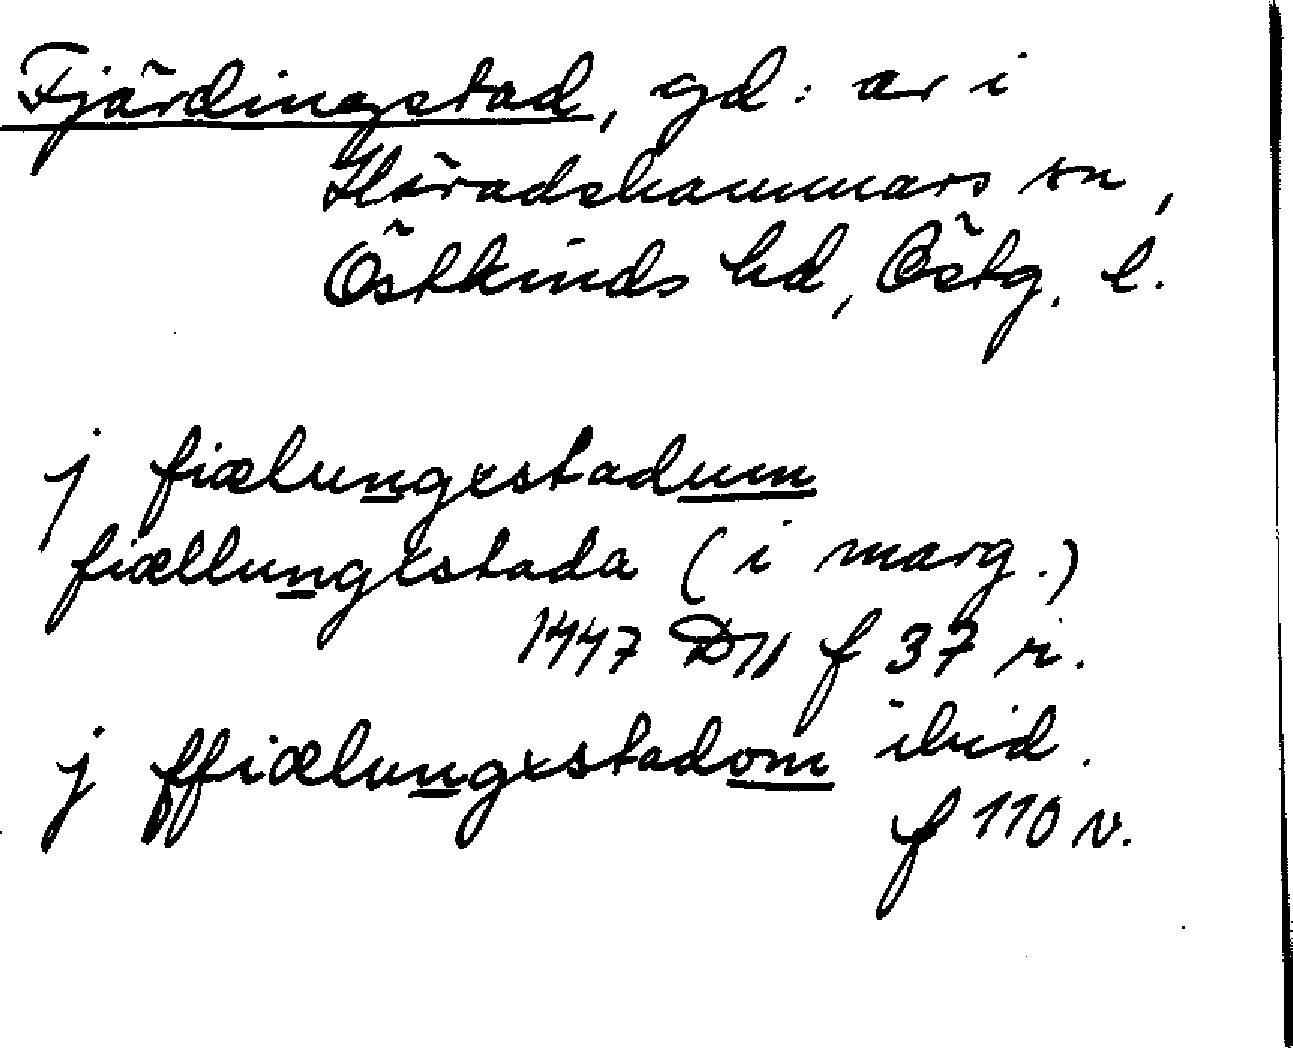 Fjärdingstad, gd: ar i
Häradshammars sn,
Östkinds hd, Östg. l.
j fiælungxstadum
fiællungxstada (i marg.)
1447 D11 f 37 r.
j ffiælungxstadom ibid.
f 110 v.